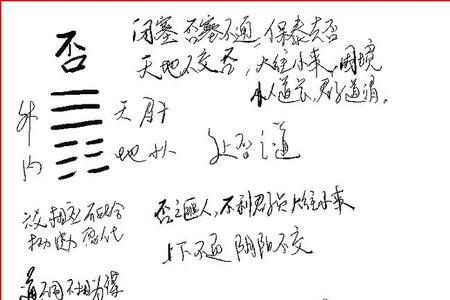 否
闭塞 否塞不通,保泰去否
天地不交否,大往小来,困境
小人道长,君子道消。
外 天
内 地
处否之道
否之匪人,不利君子贞大往小来
上下不通 阴阳不交
道不同不相为谋